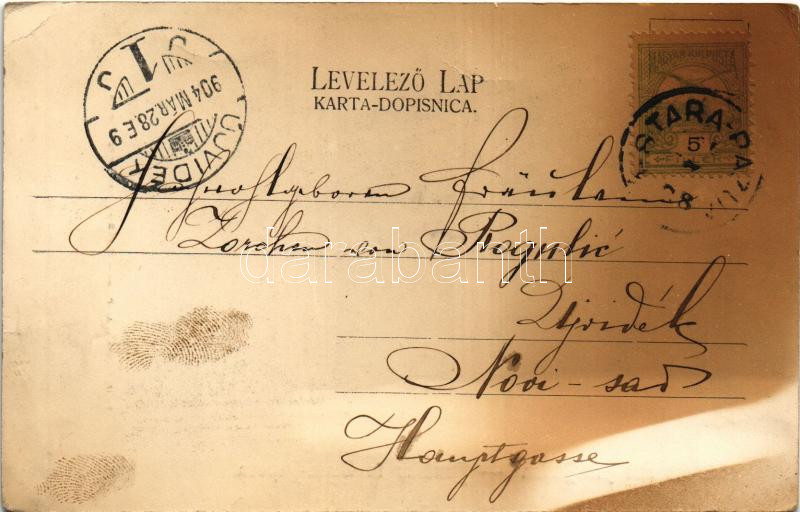 ÚJVIDÉK
904 MAR. 28. E 9
1
LEVELEZŐ LAP
KARTA-DOPISNICA.
MAGYAR KIR. POSTA
5
STARA-PAZUA
Hochwohlgeboren Fräulein
Zorchen von Raguli&#263;
Ujvidék
Novi-sad
Hauptgasse
darabanth